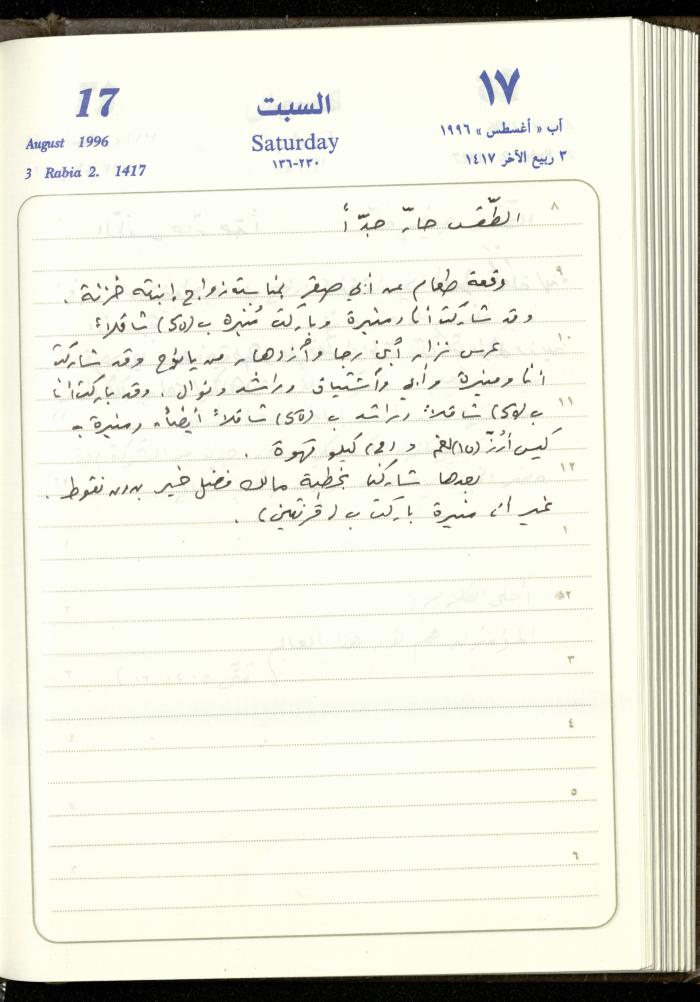 17
August 1996
3 Rabia 2. 1417
السبت
Saturday
١٣٦-٢٣٠
١٧
آب « أغسطس » ١٩٩٦
٣ ربيع الآخر ١٤١٧
٨
الطّقس حارّ جدّاً
٩
وقعة طعام عن أبي صقر بمناسبة زواج إبنته خزنة .
وقد شاركت أنا ومنيرة وباركت مُنيره ب (٥٠) شاقلاً
١٠
عرس نزار أبن رجا وأزدهار من يانوح وقد شاركت
أنا ومنيرة وأبي وأشتياق وراشد ونوال . وقد باركت أنا
١١
ب (٥٠) شاقلاً وراشد ب (٥٥) شاقلاً أيضاً ومنيرة ب
كيس أرُزّ (١٥) كغم و (٢) كيلو قهوة .
١٢
بعدها شاركنا بخطبة مالك فضل خير بدون نقوط .
غير أن منيرة باركت ب (قرنتين) .
١
٢
٣
٤
٥
٦